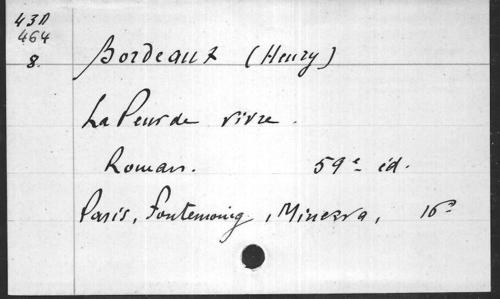 43D
464
8.
Bordeaux (Henry)
La Peur de vivre.
Roman. 59e éd.
Paris, Fontemoing, Minerva, 16°